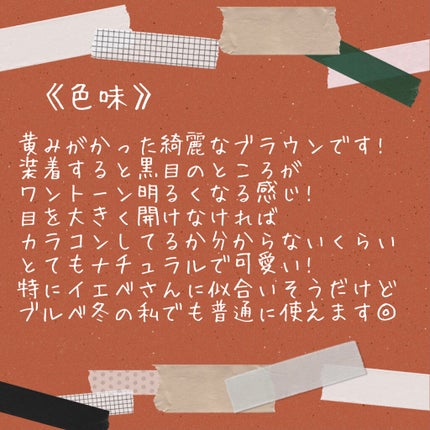 《色味》
黄みがかった綺麗なブラウンです!
装着すると黒目のところが
ワントーン明るくなる感じ!
目を大きく開けなければ
カラコンしてるか分からないくらい
とてもナチュラルで可愛い!
特にイエベさんに似合いそうだけど
ブルベ冬の私でも普通に使えます◎